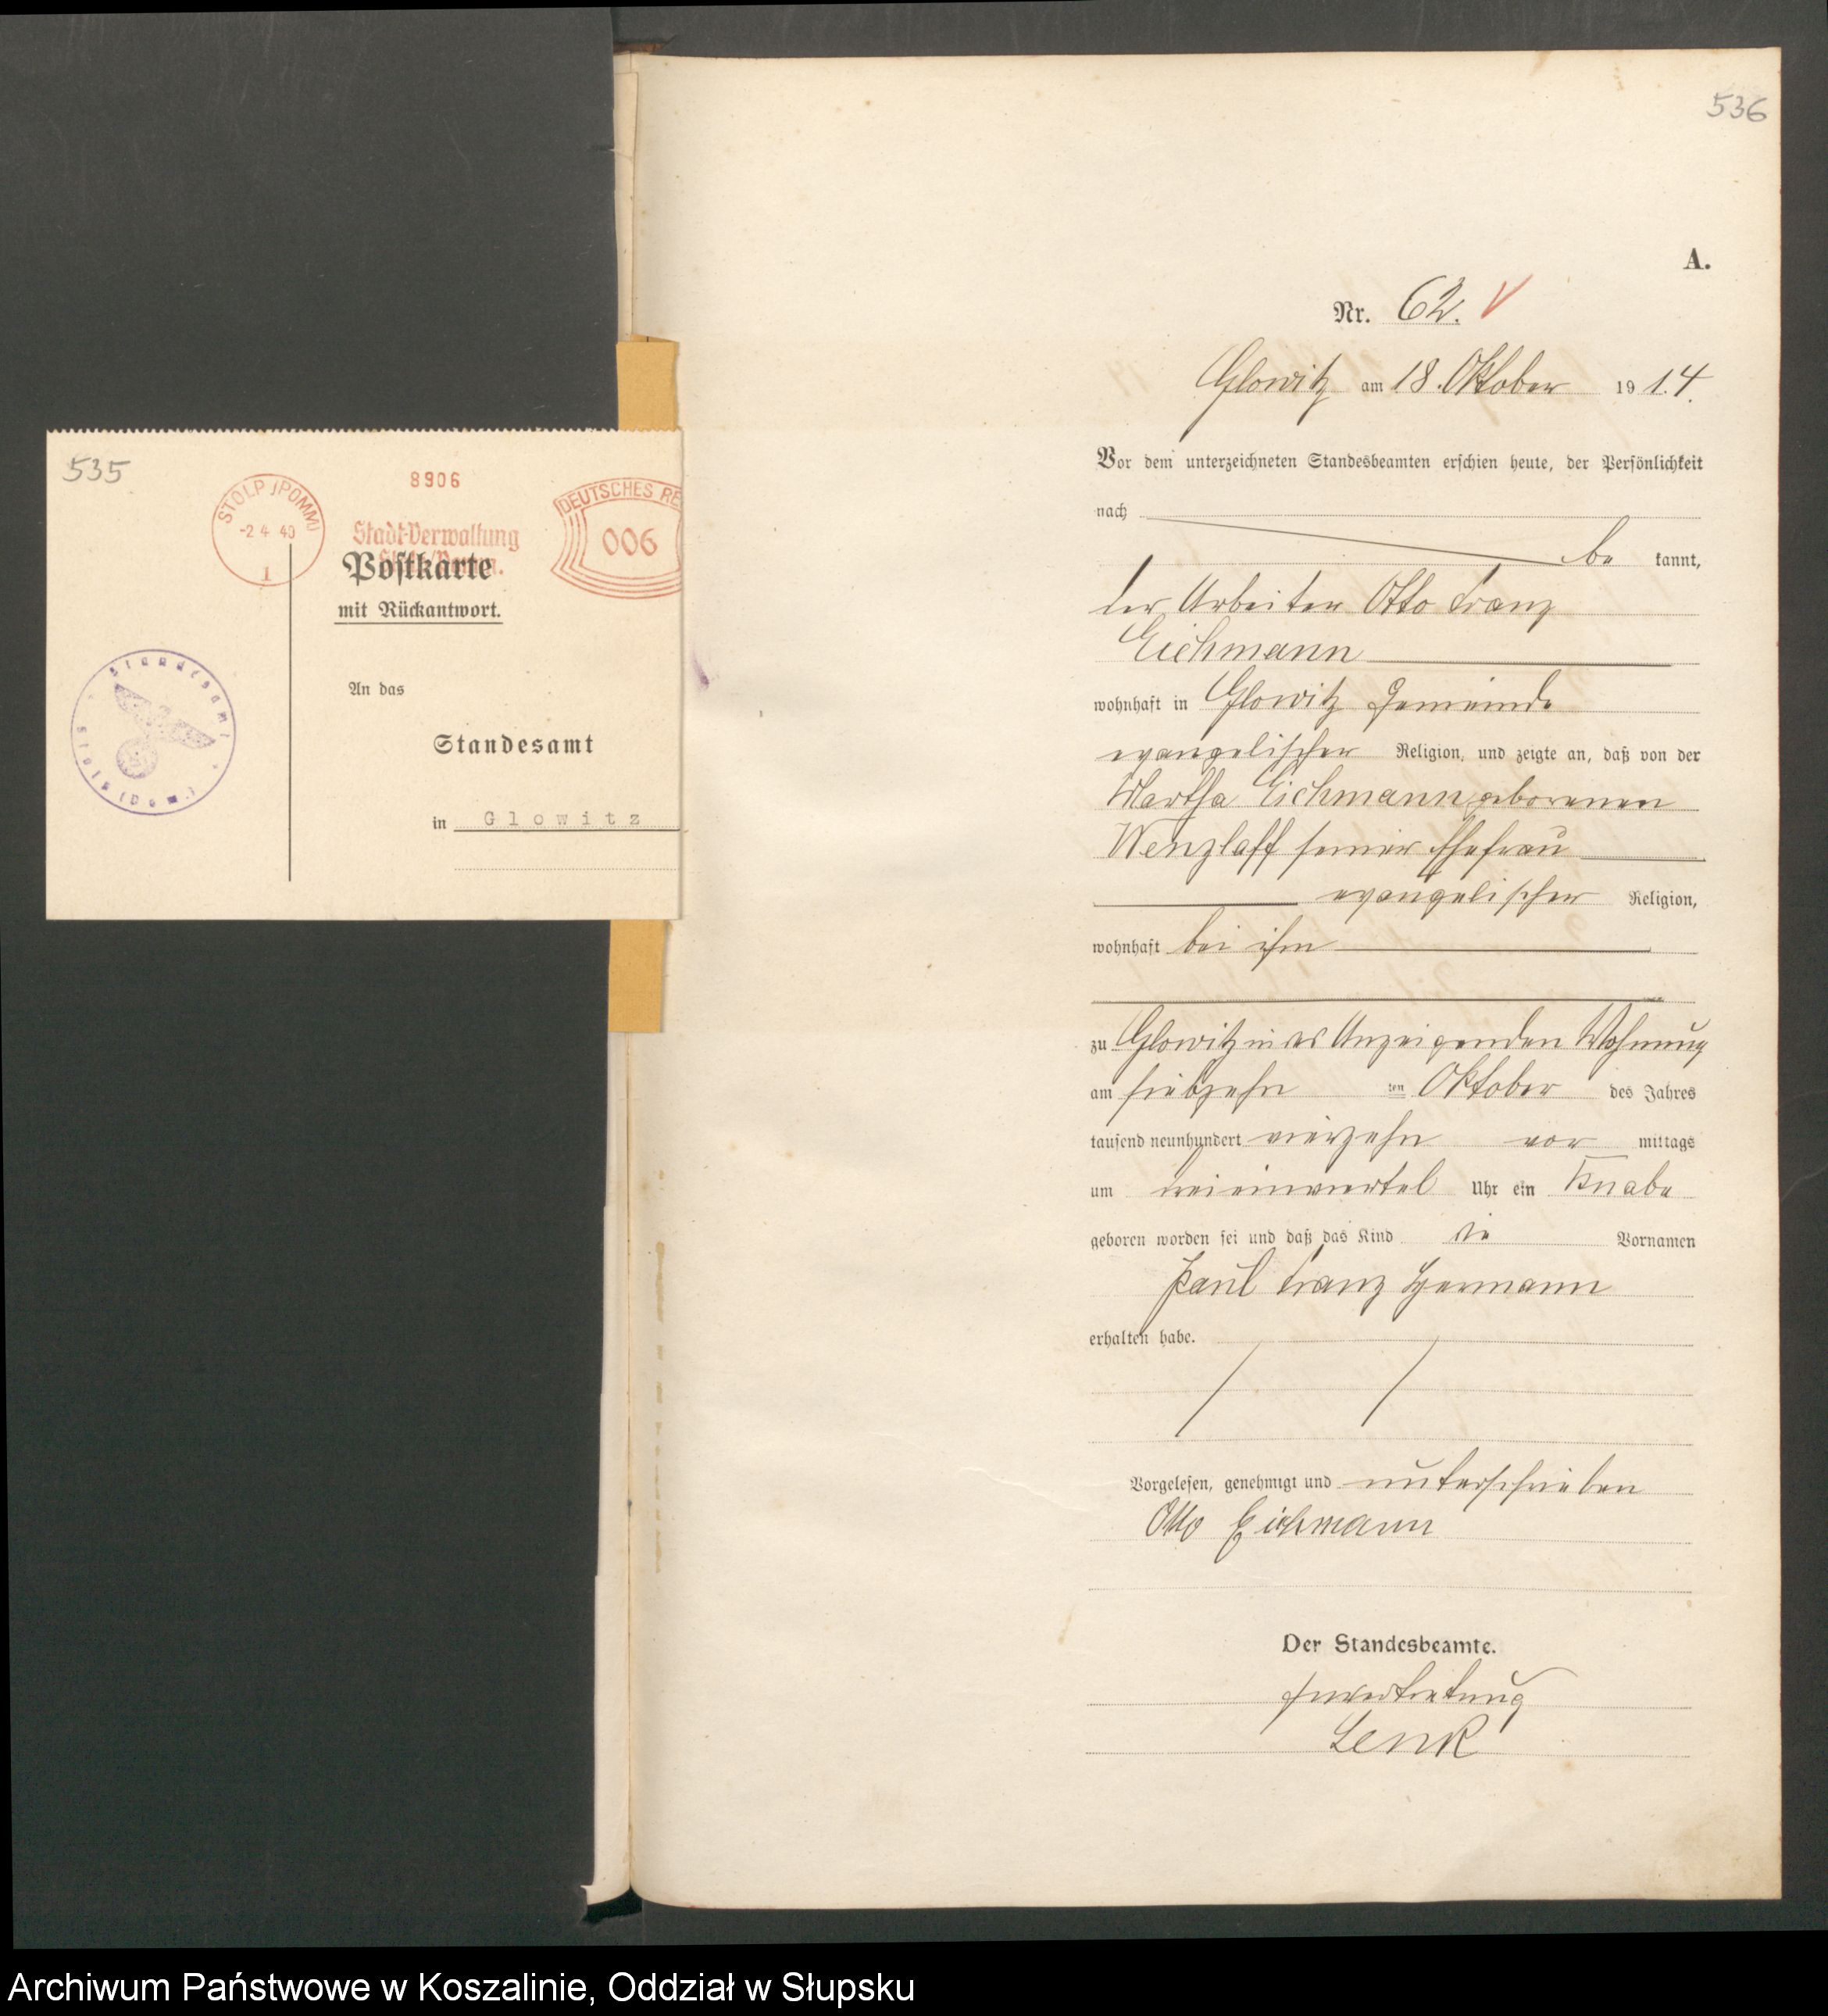 535
STOLP (POMM)
-2 4 40
1
8906
Stadt-Verwaltung
DEUTSCHES RE
006
Postkarte
mit Rückantwort.
Standesamt
An das
Standesamt
in Glowitz
536
A.
Nr. 62.
Glowitz am 18. Oktober 1914.
Vor dem unterzeichneten Standesbeamten erschien heute, der Persönlichkeit
nach
be kannt,
der Arbeiter Otto Franz
Eichmann
wohnhaft in Glowitz Gemeinde
evangelischer Religion, und zeigte an, daß von der
Martha Eichmann geborenen
Wenzlaff seiner Ehefrau
evangelischer Religion,
wohnhaft bei ihm
zu Glowitz in des Anzeigenden Wohnung
am siebzehn ten Oktober des Jahres
tausend neunhundert vierzehn vor mittags
um Uhr ein Knabe
geboren worden sei und daß das Kind die Vornamen
Paul Franz Hermann
erhalten habe.
Vorgelesen, genehmigt und unterschrieben
Otto Eichmann
Der Standesbeamte.
In Vertretung
Lenk
Archiwum Państwowe w Koszalinie, Oddział w Słupsku